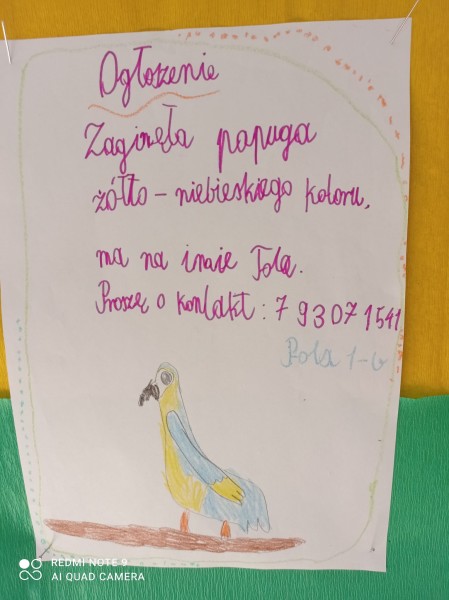 Ogłoszenie
Zaginęła papuga
żółto - niebieskiego koloru,
ma na imie Tola.
Proszę o kontakt : 793071541
Pola 1-b
REDMI NOTE 9
AI QUAD CAMERA